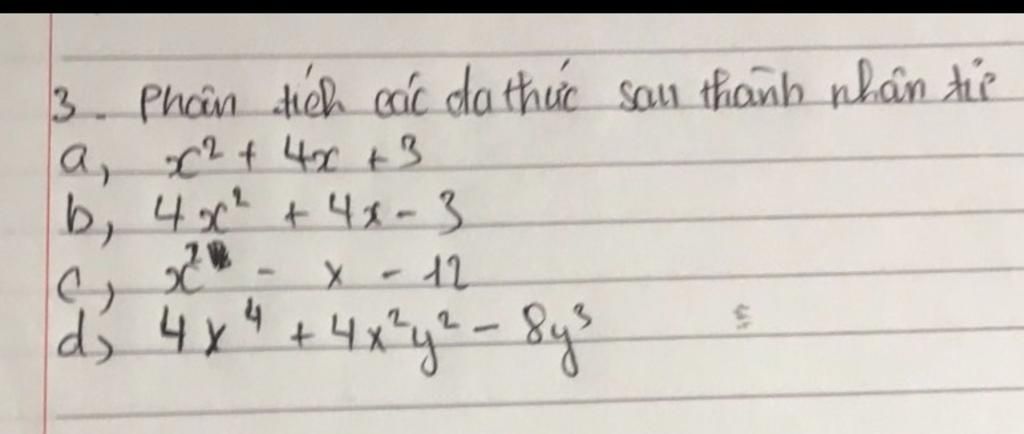 3. Phân tích các đa thức sau thành nhân tử
a, x² + 4x + 3
b, 4x² + 4x - 3
c, x² - x - 12
d, 4x⁴ + 4x²y² - 8y³